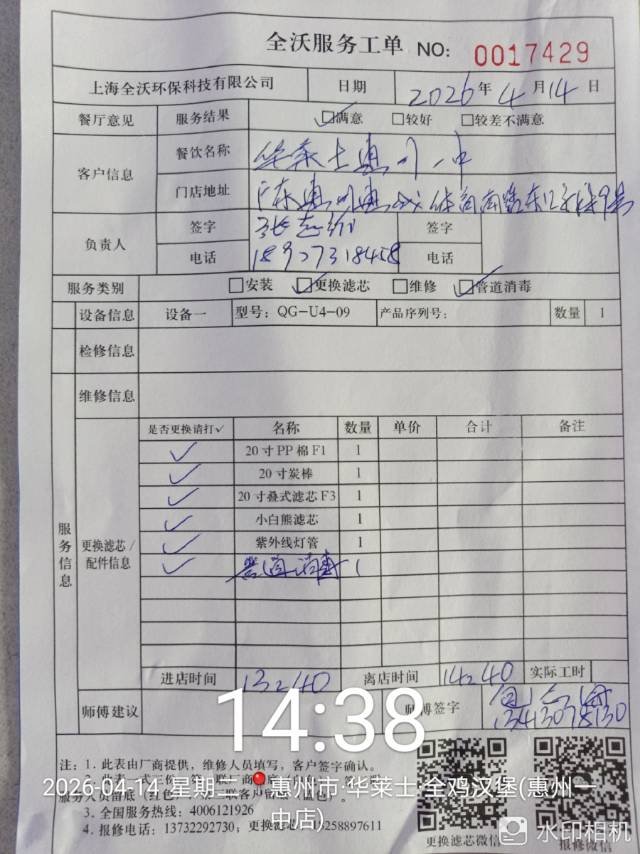 全沃服务工单 NO: 0017429
上海全沃环保科技有限公司 日期 2026年4月14日
餐厅意见 服务结果 ☑满意 □较好 □较差不满意
客户信息 餐饮名称 华莱士惠州一中
门店地址 广东惠州惠城
负责人 签字 签字
电话 18927318458 电话
服务类别 □安装 ☑更换滤芯 □维修 ☑管道消毒
设备信息 设备一 型号: QG-U4-09 产品序列号: 数量 1
检修信息
维修信息
服务信息
更换滤芯/配件信息
是否更换请打✓ 名称 数量 单价 合计 备注
✓ 20寸PP棉F1 1
✓ 20寸炭棒 1
✓ 20寸叠式滤芯F3 1
✓ 小白熊滤芯 1
✓ 紫外线灯管 1
✓ 管道消毒 1
进店时间 13:40 离店时间 14:40 实际工时
师傅建议 师傅签字
14:38
注: 1. 此表由厂商提供，维修人员填写，客户签字确认。
2026-04-14 星期二 惠州市·华莱士·全鸡汉堡(惠州一中店)
3. 全国服务热线: 4006121926
4. 报修电话: 13732292730;
更换滤芯微信 报修微信
水印相机